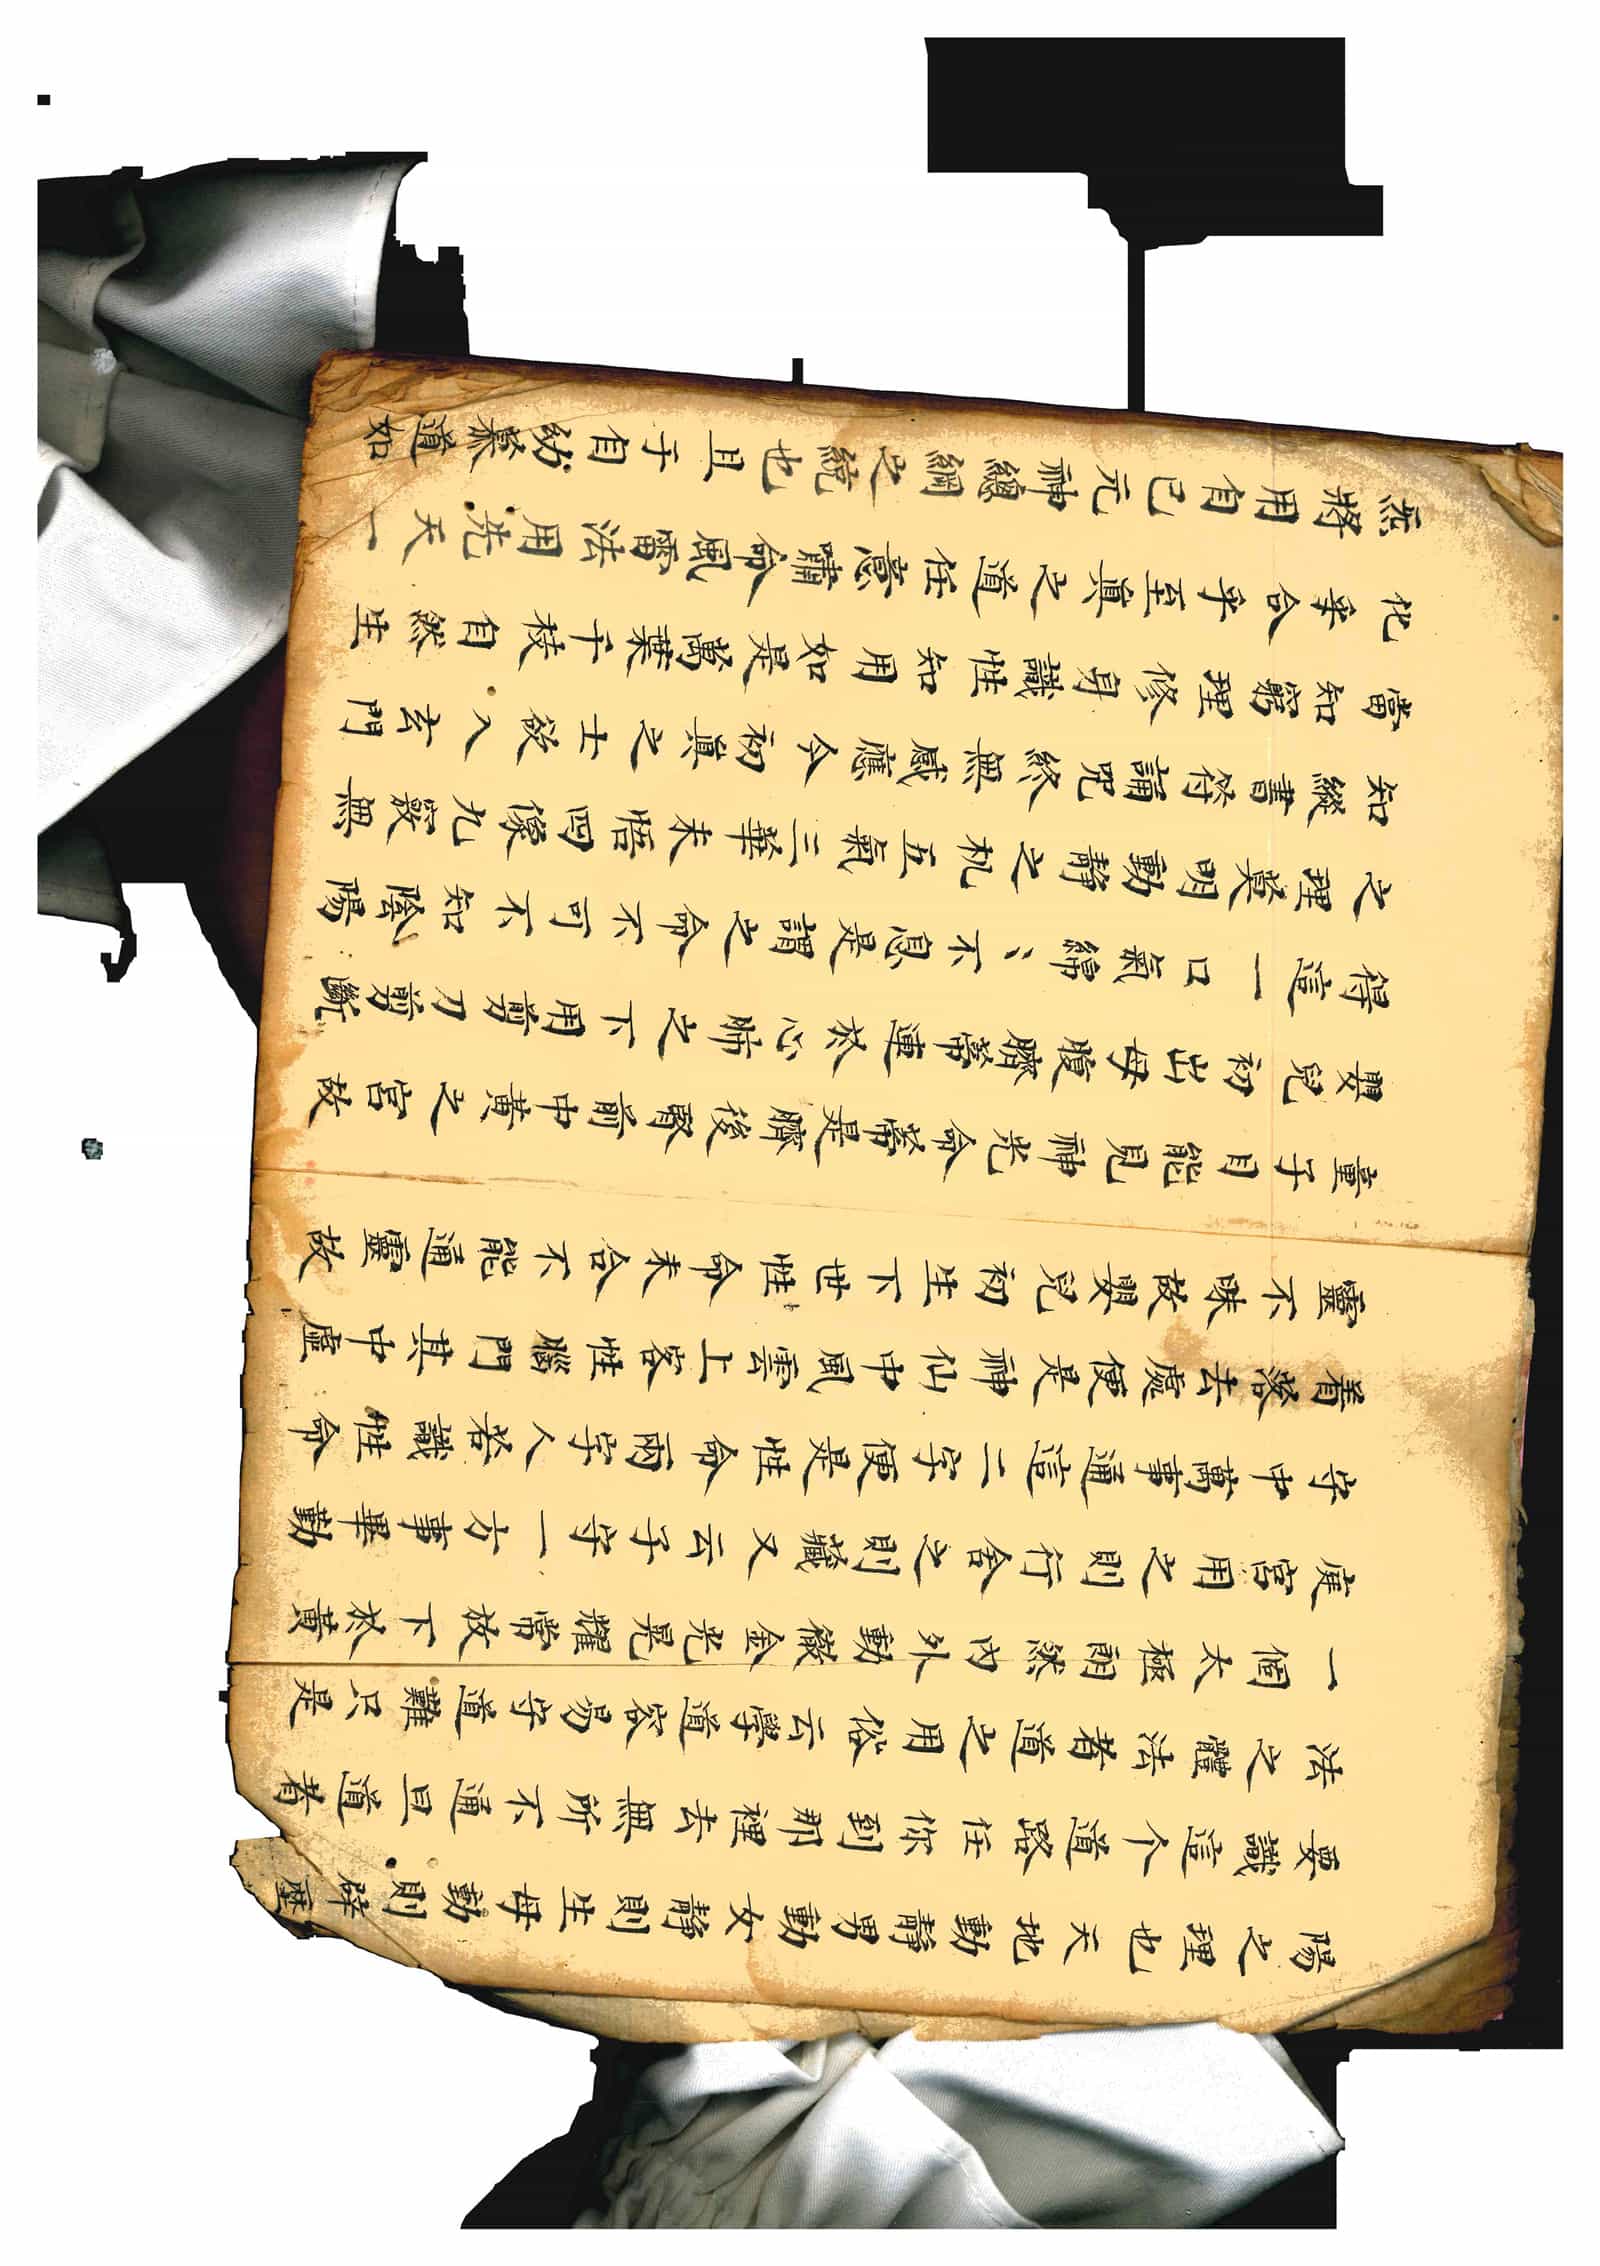 陽之理也天地動靜男動女靜則生母動則辟歷
要識這个道路任你到那裡去無所不通且道者
法之體法者道之用俗云學道容易守道難只是
一個太極朗然內外動徹金光晃耀常放下於黃
庭宮用之則行舍之則藏又云子守一方事畢勤
守中萬事通這二字便是性命兩字人若識性命
着落去處便是神仙中風雲上客性腦門其中虛
靈不昧故嬰兒初生下世性命未合不能通靈故
童子目能見神光命蒂是臍後腎前中黃之宮故
嬰兒初出母腹臍蒂連於心肺之下用剪刀剪斷
得這一口氣綿〻不息是謂之命不可不知陰陽
之理莫明動靜之机五氣三華未悟四像九竅無
知縱書符誦咒終無感應今初真之士欲入玄門
當知窮理修身識性知用如是萬葉千枝自然生
化乎合乎至真之道任意嘯命風雷法用先天一
炁將用自己元神總綱之統也且于自幼慕道如